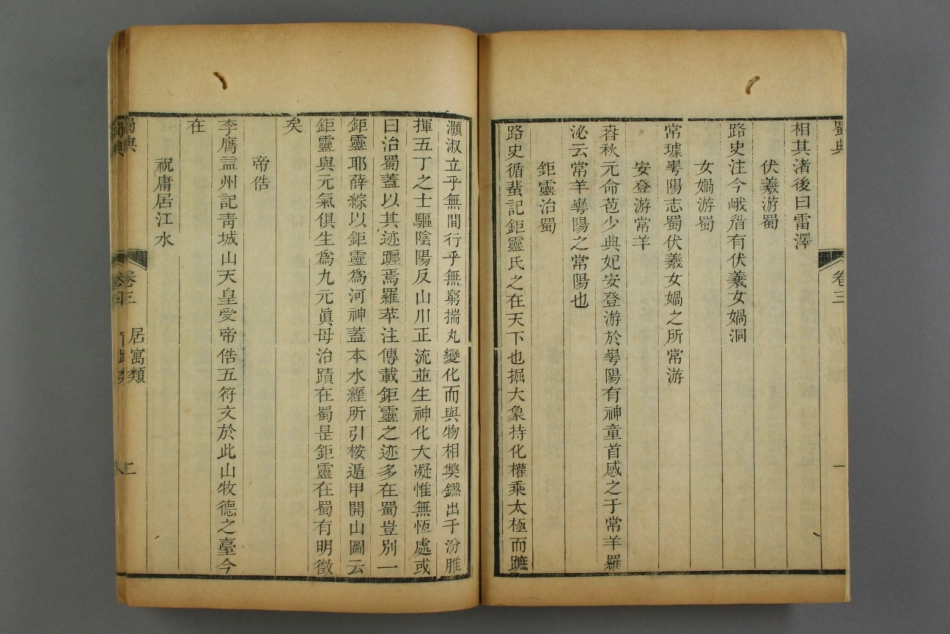 蜀典
卷三
一
相其渚後曰雷澤
伏羲游蜀
路史注今峨眉有伏羲女媧洞
女媧游蜀
常璩華陽志蜀伏羲女媧之所常游
安登游常羊
春秋元命苞少典妃安登游於華陽有神童首感之于常羊羅
泌云常羊華陽之常陽也
鉅靈治蜀
路史循蜚記鉅靈氏之在天下也握大象持化權乘太極而蹠
灝淑立乎無間行乎無窮揣丸變化而與物相獘鑑出于汾脽
揮五丁之士驅陰陽反山川正流竝生神化大凝惟無恆處或
曰治蜀蓋以其迹躔焉羅苹注傳載鉅靈之迹多在蜀豈別一
鉅靈耶薛綜以鉅靈爲河神蓋本水經所引桉遁甲開山圖云
鉅靈與元氣俱生爲九元眞母治蹟在蜀是鉅靈在蜀有明徵
矣
帝俈
李膺益州記靑城山天皇受帝俈五符文於此山牧德之臺今
在
祝庸居江水
蜀典
卷三
居寓類